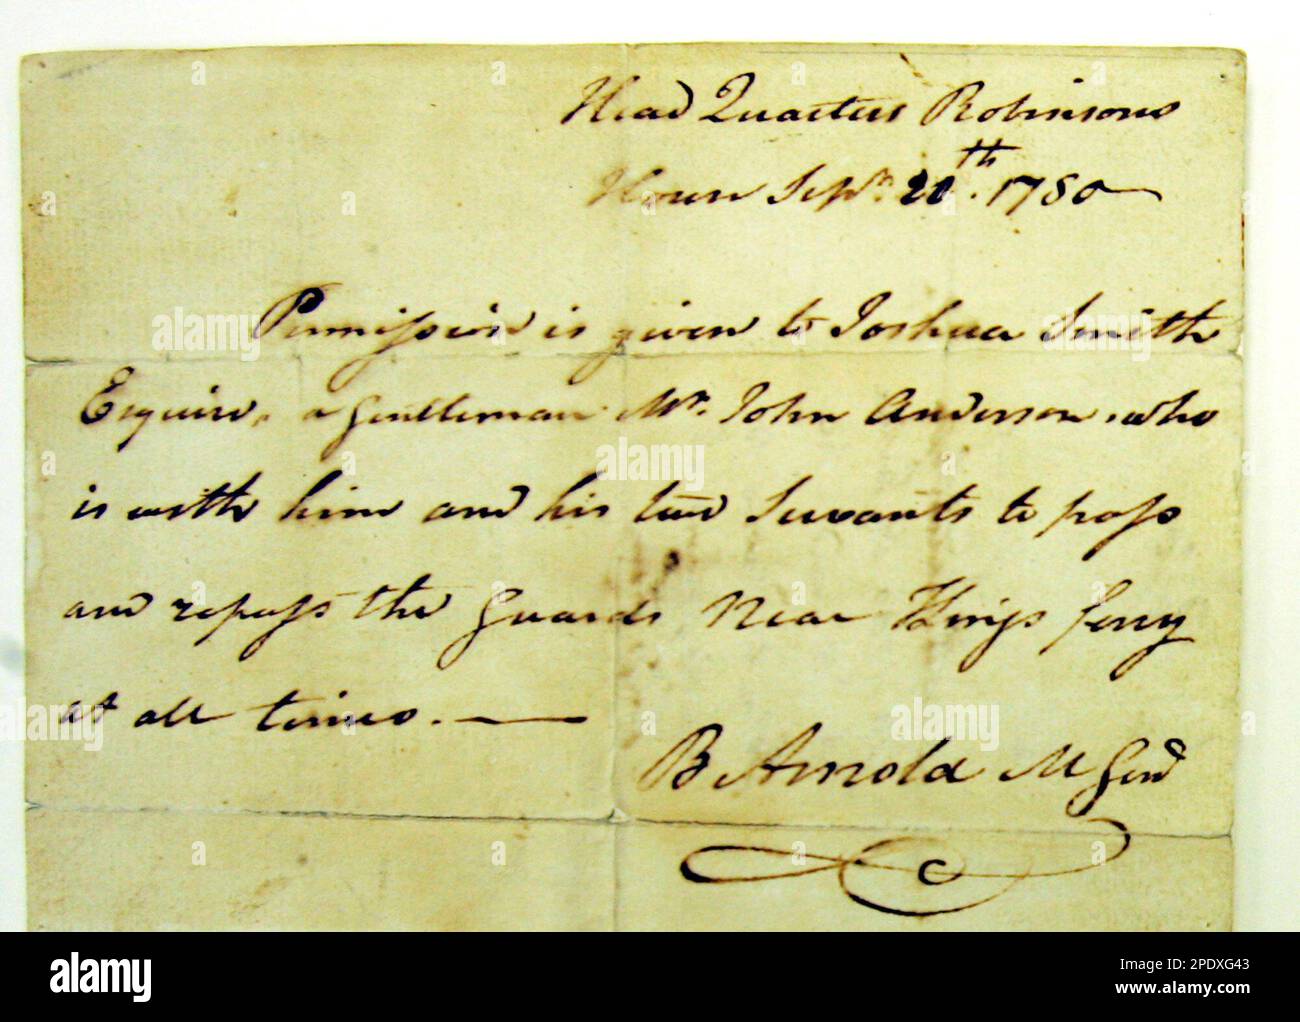 Head Quarters Robinsons
House Sepr. 20th. 1780
Permission is given to Joshua Smith
Esquire, a gentleman Mr. John Anderson who
is with him and his two Servants to pass
and repass the Guards Near Kings ferry
at all times.
B Arnold M Genl
alamy
Image ID: 2PDXG43
www.alamy.com